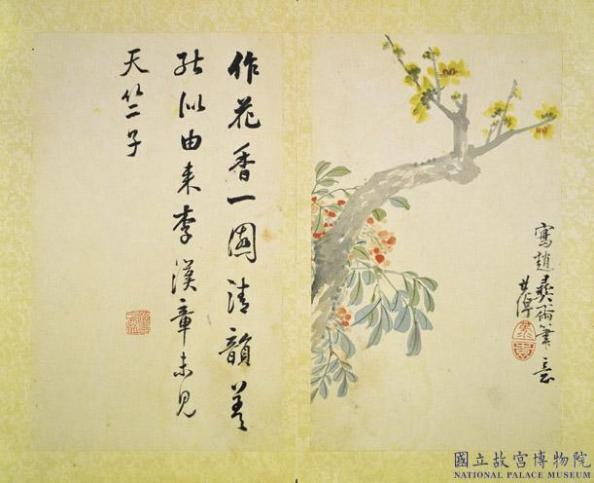 作花香一園清韻差
能似由来李漢章未見
天竺子
寫趙彝齋筆意
世倬
國立故宮博物院
NATIONAL PALACE MUSEUM